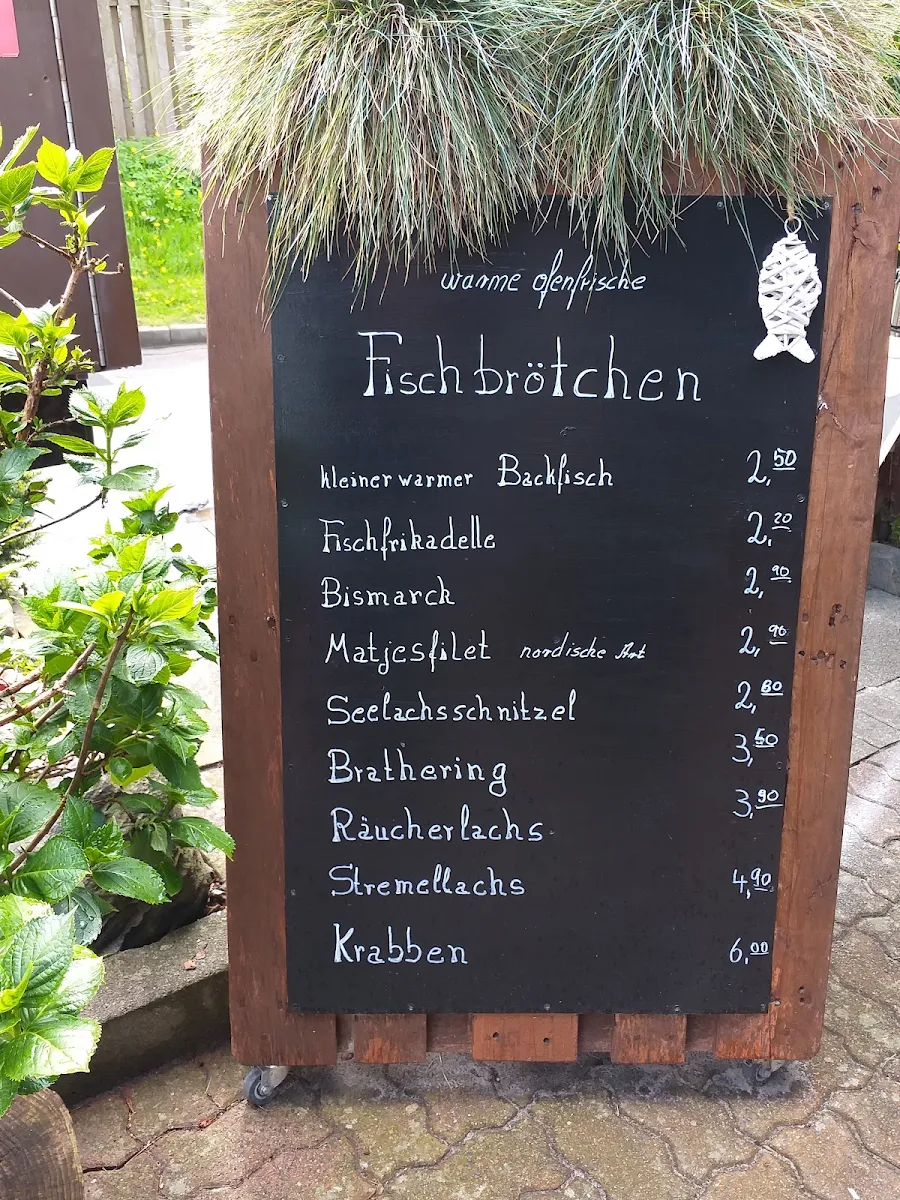 warme ofenfrische
Fischbrötchen
kleiner warmer Backfisch 2,50
Fischfrikadelle 2,20
Bismarck 2,90
Matjesfilet nordische Art 2,90
Seelachsschnitzel 2,80
Brathering 3,50
Räucherlachs 3,90
Stremellachs 4,90
Krabben 6,00